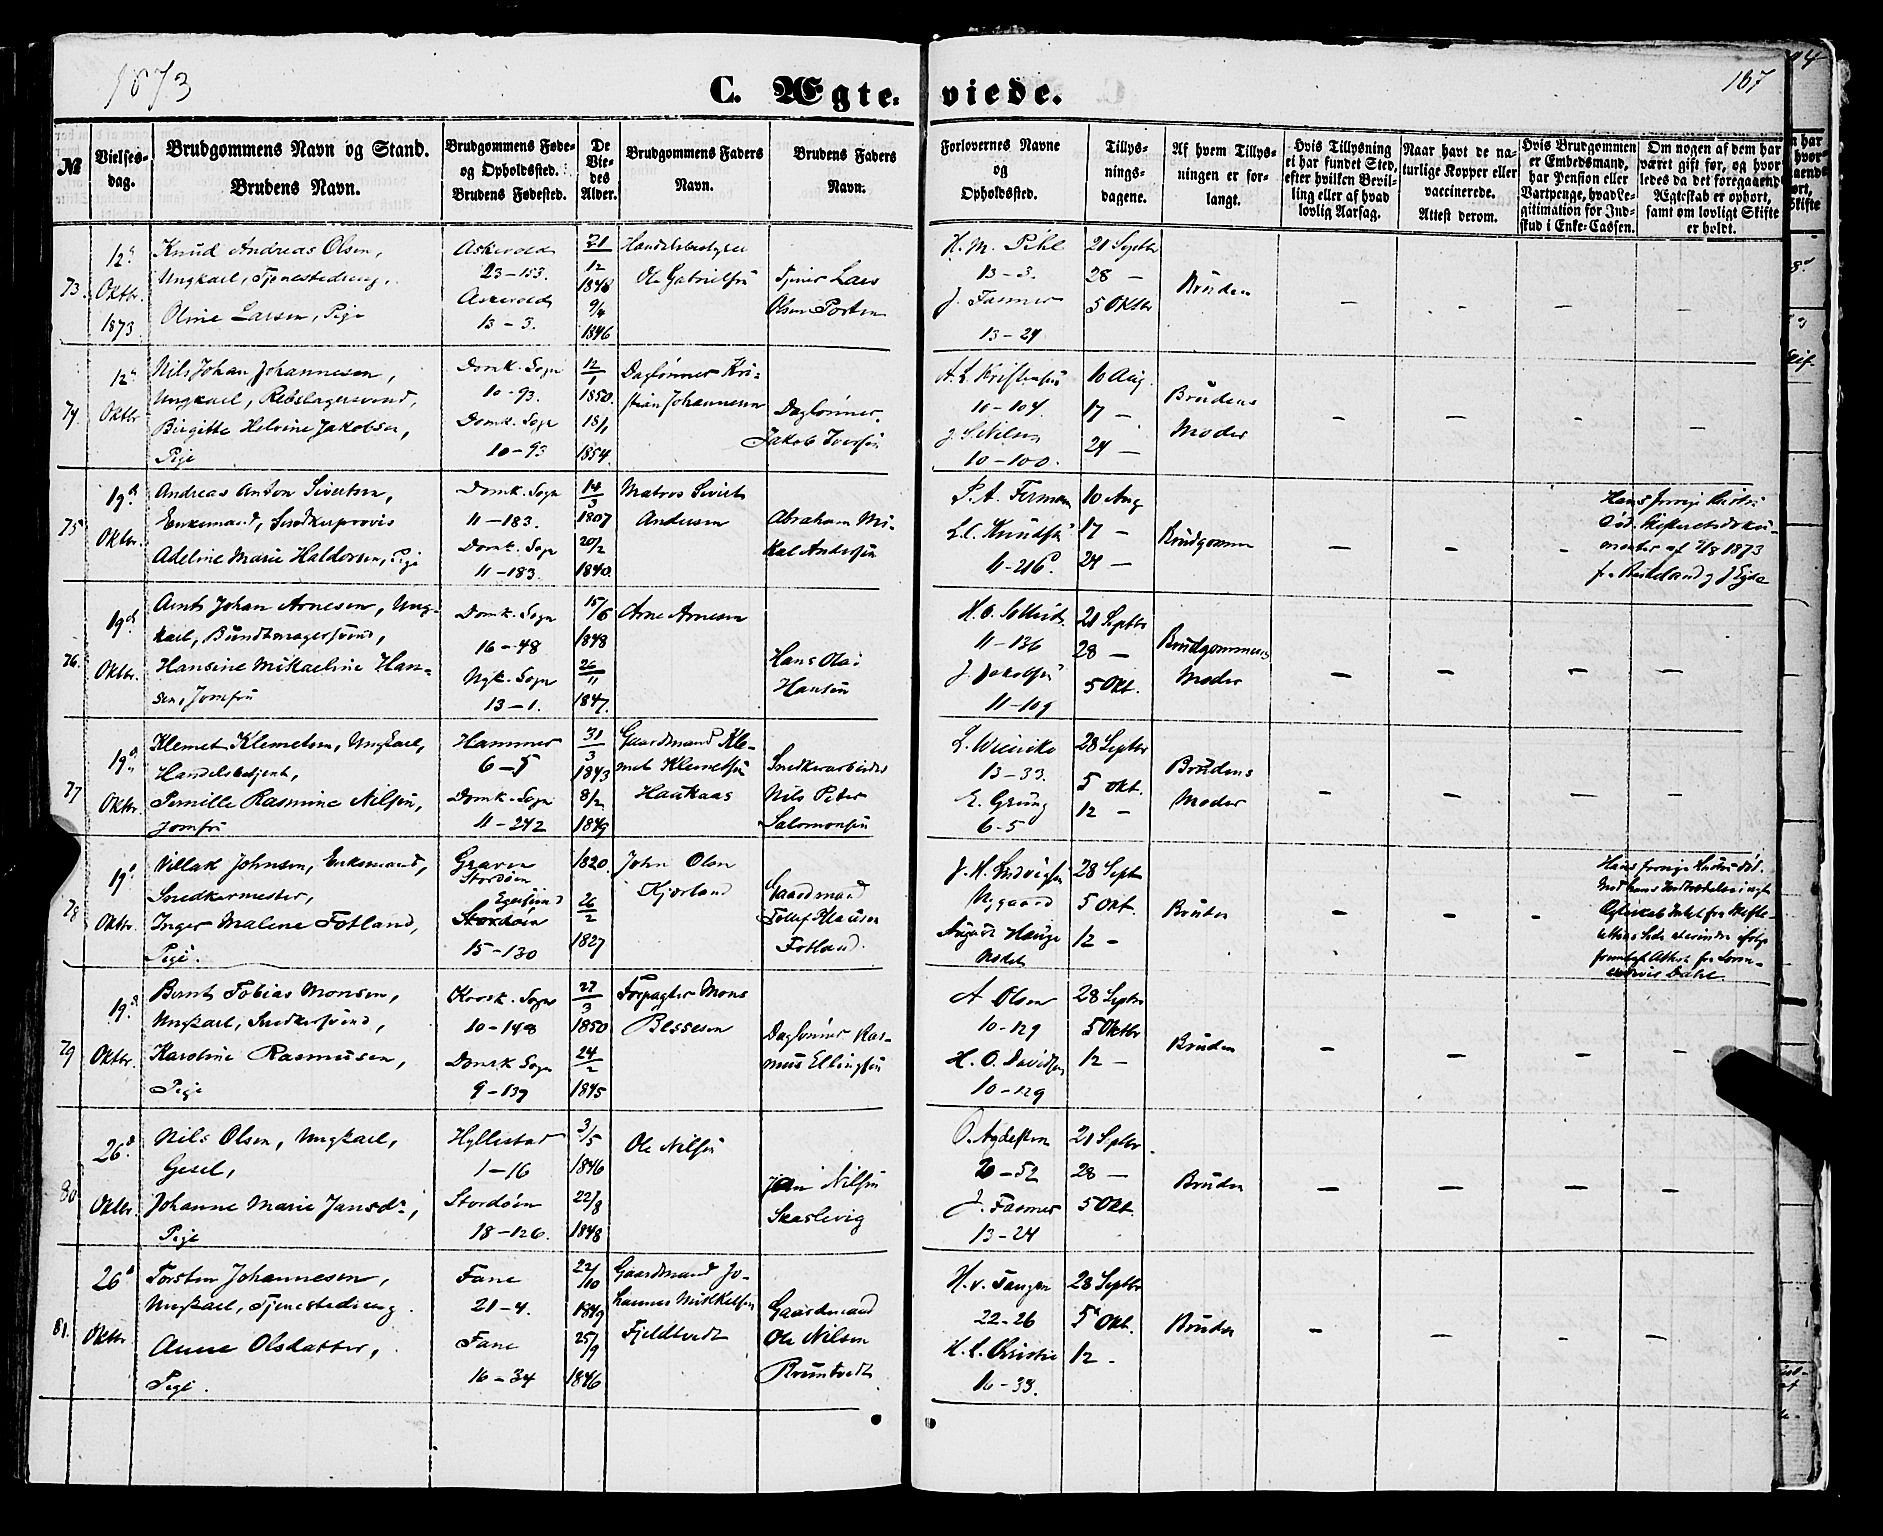 1873
C. Ægte- viede.
167
№
Vielses-
dag.
Brudgommens Navn og Stand.
Brudens Navn.
Brudgommens Føde-
og Opholdssted.
Brudens Fødested.
De
Vie-
des
Alder.
Brudgommens Faders
Navn.
Brudens Faders
Navn.
Forlovernes Navne
og
Opholdssted.
Tillys-
nings-
dagene.
Af hvem Tillys-
ningen er for-
langt.
Hvis Tillysning
ei har fundet Sted,
efter hvilken Bevil-
ling eller af hvad
lovlig Aarsag.
Naar havt de na-
turlige Kopper eller
vaccinerede.
Attest derom.
Hvis Brudgommen
er Embedsmand,
har Pension eller
Vartpenge, hvad Le-
gitimation for Ind-
skud i Enke-Cassen.
Om nogen af dem har
været gift før, og hvor
ledes da det foregaaende
Ægteskab er ophørt,
samt om lovligt Skifte
er holdt.
73.
12
Oktbr.
1873
Knud Andreas Olsen,
Ungkarl, Tjenestedreng,
Oline Larsen, Pige
Askevold
23-153.
Askevold
13-3.
31
12
1848
9/4
1846
Ole Gabrielsen
Lars
Olsen
H. M. Pihl
13-3.
J. Fasmer
13-24
21 Septbr
28 —
5 Oktbr
Bruden
74.
12
Oktbr
Nils Johan Johannesen,
Ungkarl, Rebslagersvend,
Birgitte Helvine Jakobsen,
Pige
Domk. Sogn
10-93.
Domk. Sogn
10-93
12
1
1850.
18/1
1854.
Daglønner Kri-
stian Johannesen
Daglønner
Jakob Iversen
A. L. Kristensen
10-104
J. S. Nilsen
10-100.
10 Aug.
17 —
24 —
Brudens
Moder
75
19de
Oktbr.
Andreas Anton Sivertsen,
Enkemand, Snedker
Adeline Marie Haldorsen, Pige
Domk. Sogn
11-183.
Domk. Sogn
11-183.
14
3
1807
20/2
1840.
Matros Sivert
Andersen
Abraham Mi-
kal Andersen
P. A. Forman
L. C. Knudsen
11-216
10 Aug
17 —
24 —
Brudgommen
Hans forrige Hustru
død.
af 1873
76.
19de
Oktbr.
Arnt Johan Arnesen, Ung-
karl, Bundtmagersvend,
Hansine Mikaeline Han-
sen, Jomfru
Domk. Sogn
16-48
Nyk. Sogn
13-1.
15/6
1848
26
11
1847.
Arne Arnesen
Hans Olai
Hansen
11-136
J. Jakobsen
11-109
21 Septbr
28 —
5 Okt.
Brudgommens
Moder
77
19de
Oktbr.
Klemet Klemetsen, Ungkarl,
Handelsbetjent,
Pernille Rasmine Nilsen,
Jomfru
Hammer
6-5
Domk. Sogn
11-242
31
3
1843
8/2
1849
Gaardmand Kle-
met Klemetsen
Haukaas
Snedkerarbeider
Nils Peter
Salomonsen
L. Wiencke
13-33.
E. Grung
6-5
28 Septbr
5 Okt.
12 —
Brudens
Moder
78
19
Oktbr.
Villak Johnsen, Enkemand,
Snedkermester,
Inger Malene Fotland,
Pige.
Graven
Stordøen
Egersund
Stordøen
15-130
1820.
26
2
1827
John Olsen
Kjerland
Gaardmand
Tollef Klausen
Fotland.
Nygaard
August Hauge
Nestet
28 Sept
5 Okt.
12 —
Bruden
Hans forrige Hustru død.
79
19de
Oktbr.
Bernt Tobias Monsen,
Ungkarl, Snedkersvend,
Karoline Rasmusen,
Pige
Korsk. Sogn
10-148
Domk Sogn
9-139
27
3
1850
24
2
1845
Forpagter Mons
Bessesen
Daglønner Ras-
mus Ellingsen
A Olsen
10-129
H. O. Davidsen
10-129
28 Septbr
5 Oktbr
12 —
Bruden
80
26de
Oktbr.
Nils Olsen, Ungkarl,
Gesel,
Johanne Marie Jansdr,
Pige
Hyllestad
1-16
Stordøen
18-126.
3/5
1846
22/8
1848
Ole Nilsen
Jan Nilsen
O. Agdestein
20-52
J. Fasmer
13-24
21 Septbr
28 —
5 Okt.
Bruden
81.
26de
Oktbr
Torsten Johannesen,
Ungkarl, Tjenestedreng.
Anne Olsdatter,
Pige.
Fane
21-4.
Fane
16-34
22/10
1849
25/9
1846
Gaardmand Jo-
hannes Mikkelsen
Fjeldtvedt
Gaardmand
Ole Nilsen
H. v. Tangen
22-26
H. C. Christie
16-33.
28 Septbr
5 Okt.
12 -
Bruden